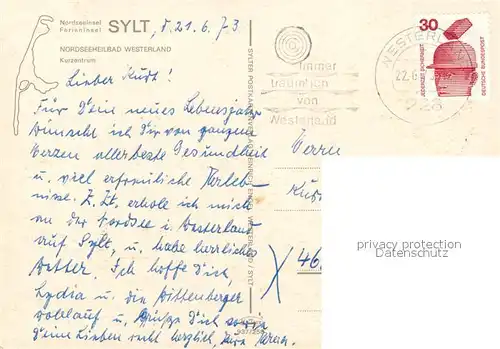 Nordseeinsel
Ferieninsel SYLT, d. 21.6.73
NORDSEEHEILBAD WESTERLAND
Kurzentrum
Lieber Kurt!
Für Dein neues Lebensjahr
wünscht ich Dir von ganzem
Herzen allerbeste Gesundheit
u. viel erfreuliche Erleb-
nisse. Z. Zt. erhole ich mich
an der Nordsee in Westerland
auf Sylt, u. habe herrliches
Wetter. Ich hoffe Dich,
Lydia u. die Wittenberger
wohlauf u. grüße Dich sowie
Deine Lieben recht herzlich,
SYLTER POSTKARTENVERLAG
WESTERLAND / SYLT
immer
träumlich
von
Westerland
WESTERLAND
22.6.
228
30
JEDERZEIT SICHERHEIT
DEUTSCHE BUNDESPOST
Herrn
46
privacy protection
Datenschutz